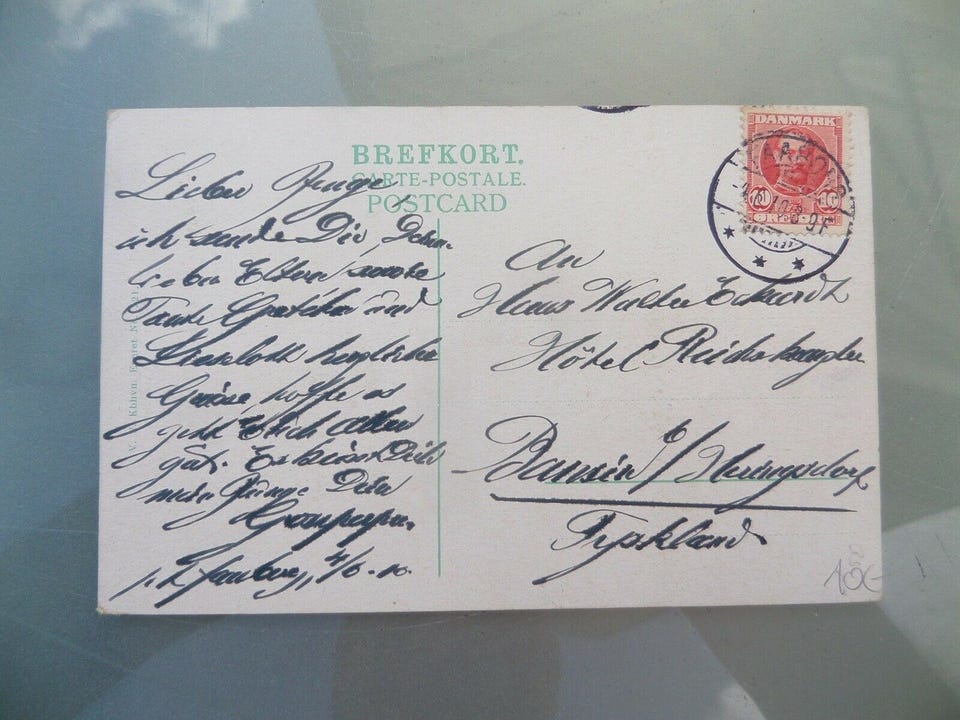 BREFKORT.
CARTE-POSTALE.
POSTCARD
DANMARK
10 10
ØRE
Lieber Junge,
ich sende Dir, Deinen
lieben Eltern sowie
Tante Gretchen und
Lieselott herzliche
Grüsse, hoffe es
geht Euch allen
gut. Es küsst Dich
mein Junge Dein
Grosspapa.
4/6.10.
An
Hans Walter Eckardt
Hôtel Reichskanzler
Bansin b/ Heringsdorf
Tyskland
10